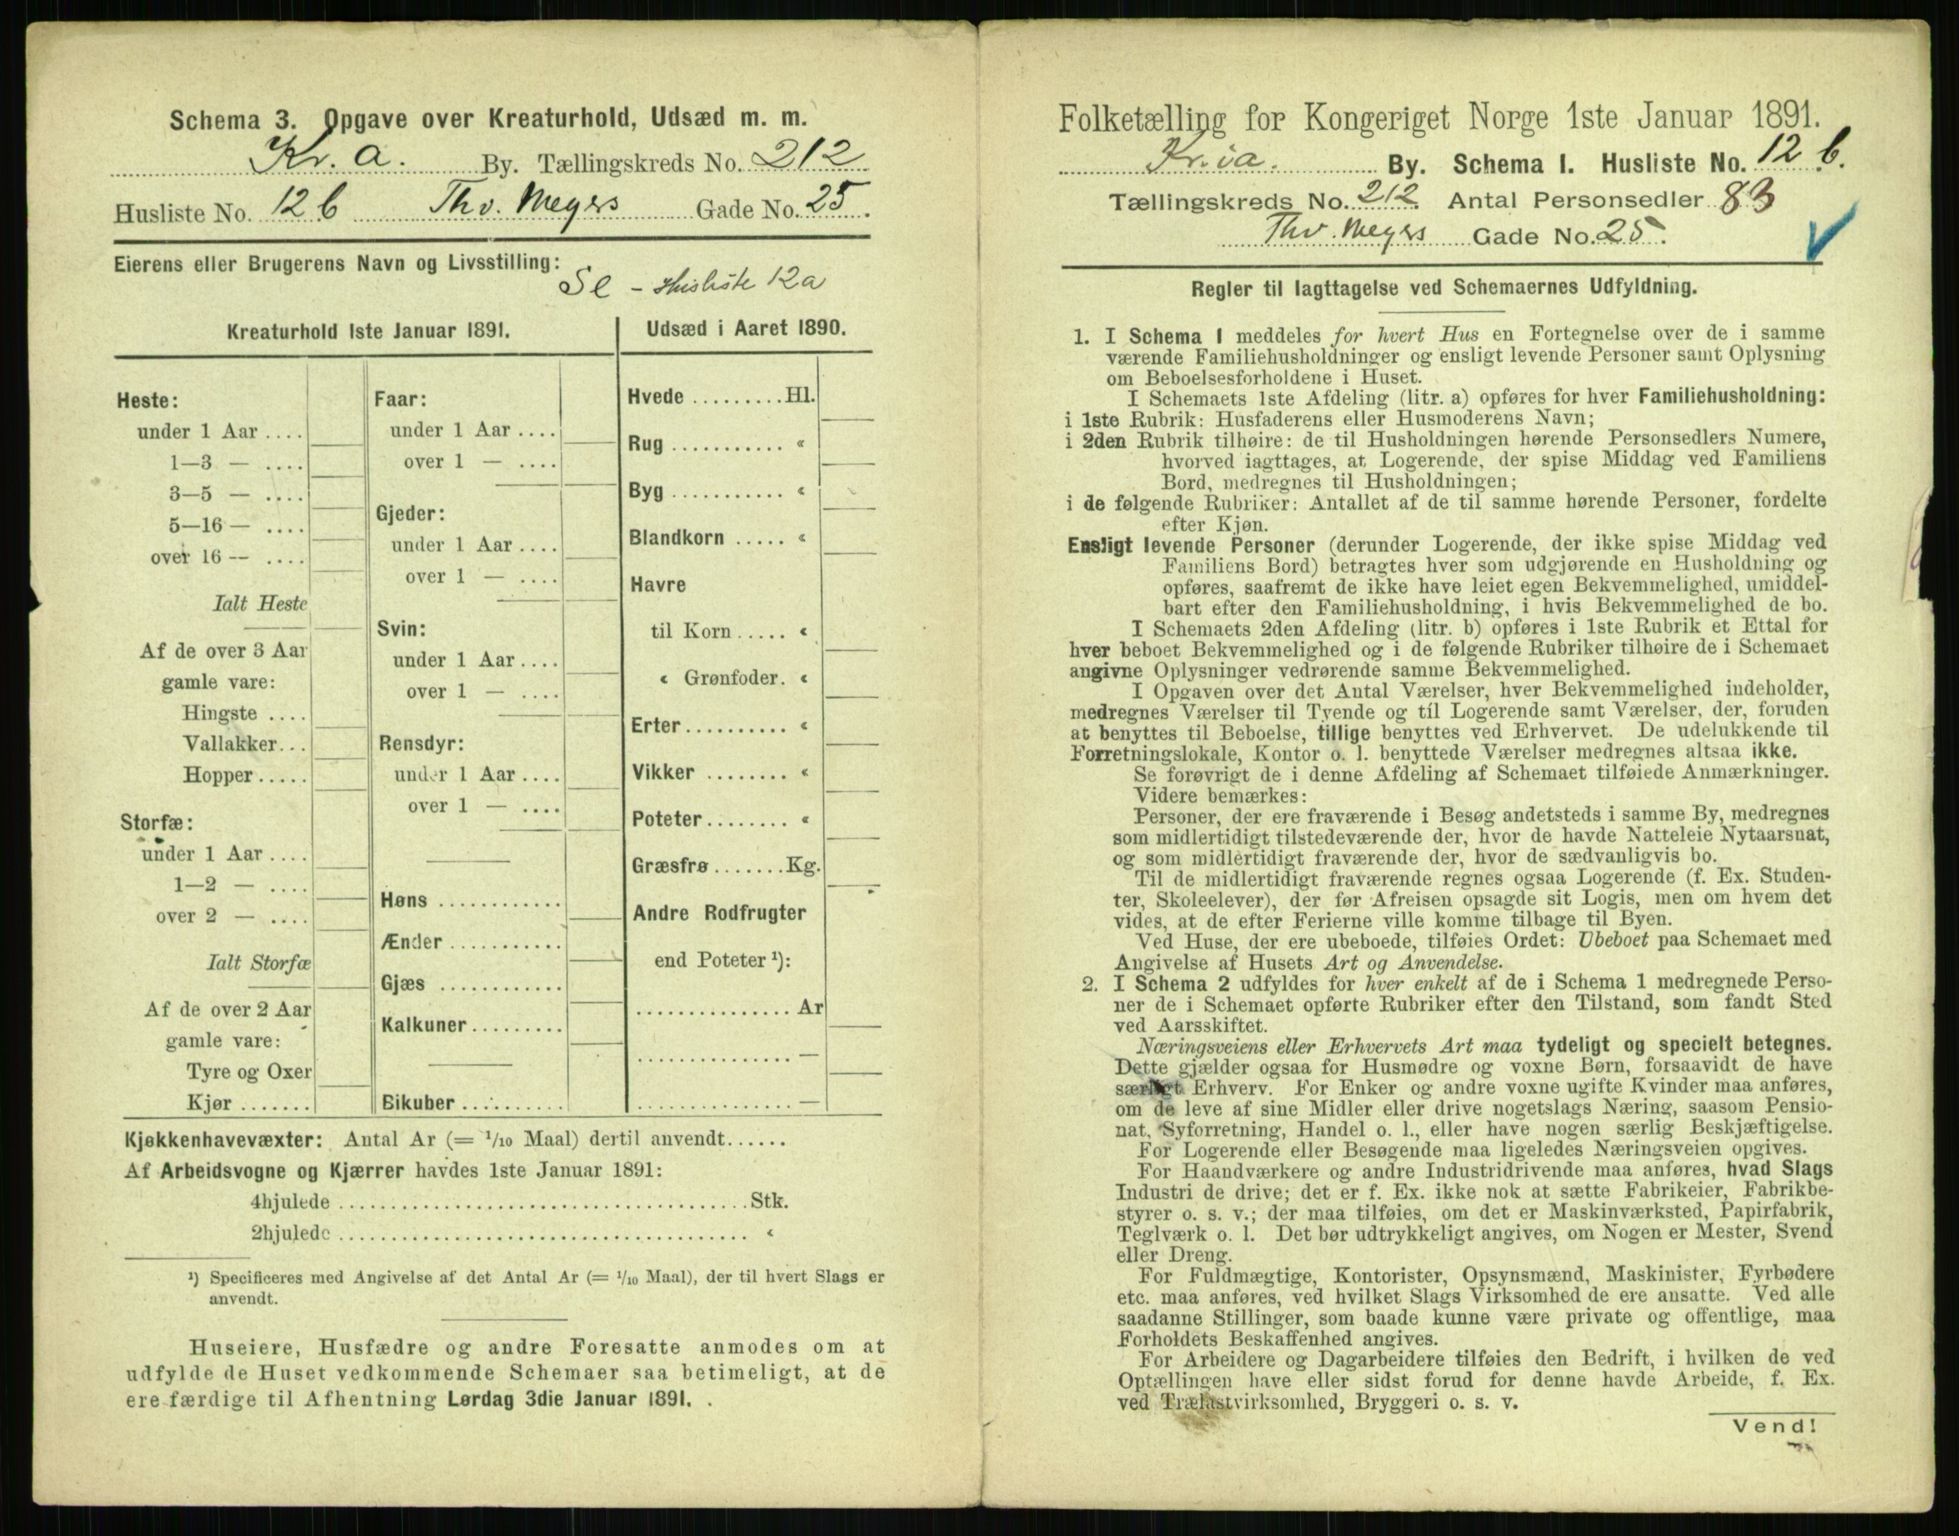 Schema 3. Opgave over Kreaturhold, Udsæd m. m.
Kr. a. By. Tællingskreds No. 212
Husliste No. 12 b Thv. Meyers Gade No. 25.
Eierens eller Brugerens Navn og Livsstilling:
Se - Husliste 12a
Kreaturhold 1ste Januar 1891.
Heste:
under 1 Aar ....
1—3 — ....
3—5 — ....
5—16 — ....
over 16 — ....
Ialt Heste
Af de over 3 Aar
gamle vare:
Hingste ....
Vallakker...
Hopper.....
Storfæ:
under 1 Aar ....
1—2 — ....
over 2 — ....
Ialt Storfæ
Af de over 2 Aar
gamle vare:
Tyre og Oxer
Kjør.......
Faar:
under 1 Aar ....
over 1 — ....
Gjeder:
under 1 Aar ....
over 1 — ....
Svin:
under 1 Aar ....
over 1 — ....
Rensdyr:
under 1 Aar ....
over 1 — ....
Høns ............
Ænder ...........
Gjæs ............
Kalkuner.........
Bikuber ..........
Udsæd i Aaret 1890.
Hvede .........Hl.
Rug ........... «
Byg ........... «
Blandkorn ..... «
Havre
til Korn ..... «
« Grønfoder. «
Erter.......... «
Vikker ........ «
Poteter........ «
Græsfrø .......Kg.
Andre Rodfrugter
end Poteter ¹):
............... Ar
............... —
............... —
Kjøkkenhavevæxter: Antal Ar (= 1/10 Maal) dertil anvendt......
Af Arbeidsvogne og Kjærrer havdes 1ste Januar 1891:
4hjulede .......................................Stk.
2hjulede ....................................... «
¹) Specificeres med Angivelse af det Antal Ar (= 1/10 Maal), der til hvert Slags er
anvendt.
Huseiere, Husfædre og andre Foresatte anmodes om at
udfylde de Huset vedkommende Schemaer saa betimeligt, at de
ere færdige til Afhentning Lørdag 3die Januar 1891.
Folketælling for Kongeriget Norge 1ste Januar 1891.
Kr.ia. By. Schema 1. Husliste No. 12 b.
Tællingskreds No. 212 Antal Personsedler 83
Thv. Meyers Gade No. 25.
Regler til Iagttagelse ved Schemaernes Udfyldning.
1. I Schema 1 meddeles for hvert Hus en Fortegnelse over de i samme
værende Familiehusholdninger og ensligt levende Personer samt Oplysning
om Beboelsesforholdene i Huset.
I Schemaets 1ste Afdeling (litr. a) opføres for hver Familiehusholdning:
i 1ste Rubrik: Husfaderens eller Husmoderens Navn;
i 2den Rubrik tilhøire: de til Husholdningen hørende Personsedlers Numere,
hvorved iagttages, at Logerende, der spise Middag ved Familiens
Bord, medregnes til Husholdningen;
i de følgende Rubriker: Antallet af de til samme hørende Personer, fordelte
efter Kjøn.
Ensligt levende Personer (derunder Logerende, der ikke spise Middag ved
Familiens Bord) betragtes hver som udgjørende en Husholdning og
opføres, saafremt de ikke have leiet egen Bekvemmelighed, umiddel-
bart efter den Familiehusholdning, i hvis Bekvemmelighed de bo.
I Schemaets 2den Afdeling (litr. b) opføres i 1ste Rubrik et Ettal for
hver beboet Bekvemmelighed og i de følgende Rubriker tilhøire de i Schemaet
angivne Oplysninger vedrørende samme Bekvemmelighed.
I Opgaven over det Antal Værelser, hver Bekvemmelighed indeholder,
medregnes Værelser til Tyende og til Logerende samt Værelser, der, foruden
at benyttes til Beboelse, tillige benyttes ved Erhvervet. De udelukkende til
Forretningslokale, Kontor o. l. benyttede Værelser medregnes altsaa ikke.
Se forøvrigt de i denne Afdeling af Schemaet tilføiede Anmærkninger.
Videre bemærkes:
Personer, der ere fraværende i Besøg andetsteds i samme By, medregnes
som midlertidigt tilstedeværende der, hvor de havde Natteleie Nytaarsnat,
og som midlertidigt fraværende der, hvor de sædvanligvis bo.
Til de midlertidigt fraværende regnes ogsaa Logerende (f. Ex. Studen-
ter, Skoleelever), der før Afreisen opsagde sit Logis, men om hvem det
vides, at de efter Ferierne ville komme tilbage til Byen.
Ved Huse, der ere ubeboede, tilføies Ordet: Ubeboet paa Schemaet med
Angivelse af Husets Art og Anvendelse.
2. I Schema 2 udfyldes for hver enkelt af de i Schema 1 medregnede Perso-
ner de i Schemaet opførte Rubriker efter den Tilstand, som fandt Sted
ved Aarsskiftet.
Næringsveiens eller Erhvervets Art maa tydeligt og specielt betegnes.
Dette gjælder ogsaa for Husmødre og voxne Børn, forsaavidt de have
særligt Erhverv. For Enker og andre voxne ugifte Kvinder maa anføres,
om de leve af sine Midler eller drive nogetslags Næring, saasom Pensio-
nat, Syforretning, Handel o. l., eller have nogen særlig Beskjæftigelse.
For Logerende eller Besøgende maa ligeledes Næringsveien opgives.
For Haandværkere og andre Industridrivende maa anføres, hvad Slags
Industri de drive; det er f. Ex. ikke nok at sætte Fabrikeier, Fabrikbe-
styrer o. s. v.; der maa tilføies, om det er Maskinværksted, Papirfabrik,
Teglværk o. l. Det bør udtrykkeligt angives, om Nogen er Mester, Svend
eller Dreng.
For Fuldmægtige, Kontorister, Opsynsmænd, Maskinister, Fyrbødere
etc. maa anføres, ved hvilket Slags Virksomhed de ere ansatte. Ved alle
saadanne Stillinger, som baade kunne være private og offentlige, maa
Forholdets Beskaffenhed angives.
For Arbeidere og Dagarbeidere tilføies den Bedrift, i hvilken de ved
Optællingen have eller sidst forud for denne havde Arbeide, f. Ex.
ved Trælastvirksomhed, Bryggeri o. s. v.
Vend!